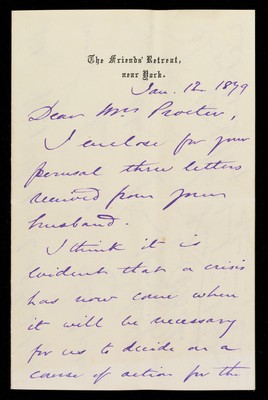 The Friends' Retreat,
near York.
Jan. 12 1879
Dear Mrs Procter,
I enclose for your
perusal three letters
received from your
husband.
I think it is
evident that a crisis
has now come when
it will be necessary
for us to decide on a
course of action for the